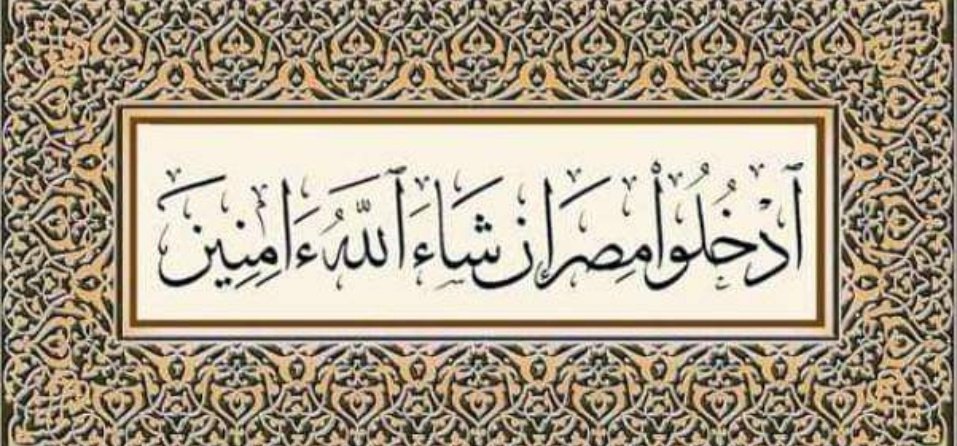 ٱدْخُلُوا۟ مِصْرَ إِن شَاءَ ٱللَّهُ ءَامِنِينَ